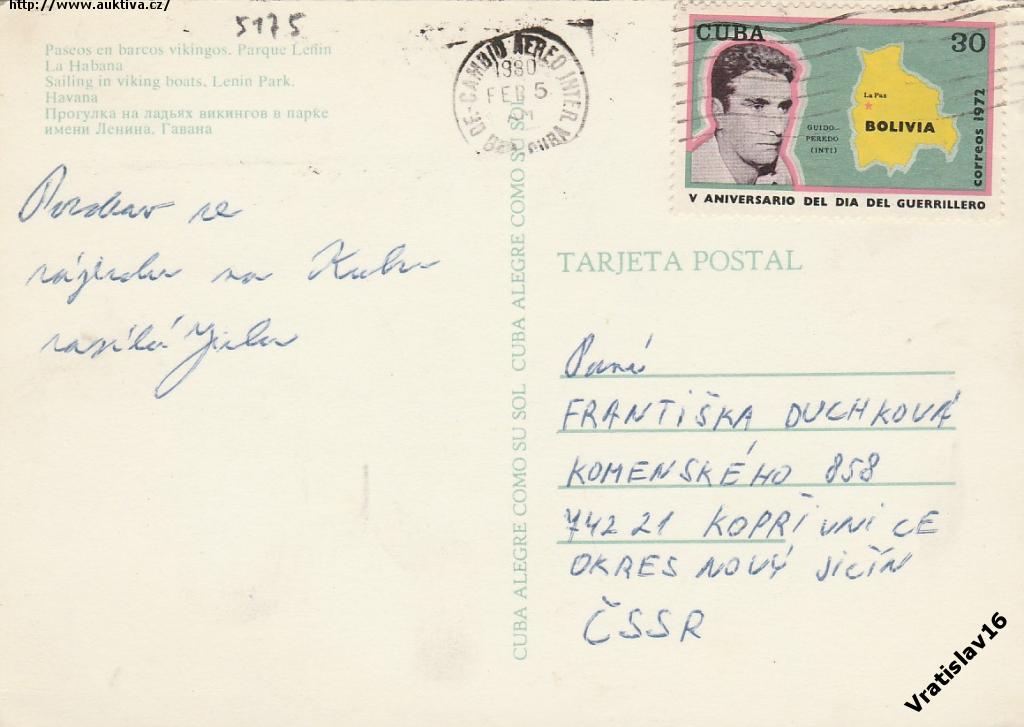 http://www.auktiva.cz/
5175
Paseos en barcos vikingos. Parque Lenin
La Habana
Sailing in viking boats. Lenin Park.
Havana
Прогулка на ладьях викингов в парке
имени Ленина. Гавана
DE CAMBIO AEREO INTER
1980
FEB 5
CUBA
30
La Paz
BOLIVIA
GUIDO-
PEREDO
(INTI)
correos 1972
V ANIVERSARIO DEL DIA DEL GUERRILLERO
Pozdrav ze
zájezdu na Kubu
zasílá
CUBA ALEGRE COMO SU SOL CUBA ALEGRE COMO SU SOL CUBA ALEGRE COMO SU SOL
TARJETA POSTAL
Paní
FRANTIŠKA DUCHKOVÁ
KOMENSKÉHO 858
742 21 KOPŘIVNICE
OKRES NOVÝ JIČÍN
ČSSR
Vratislav16